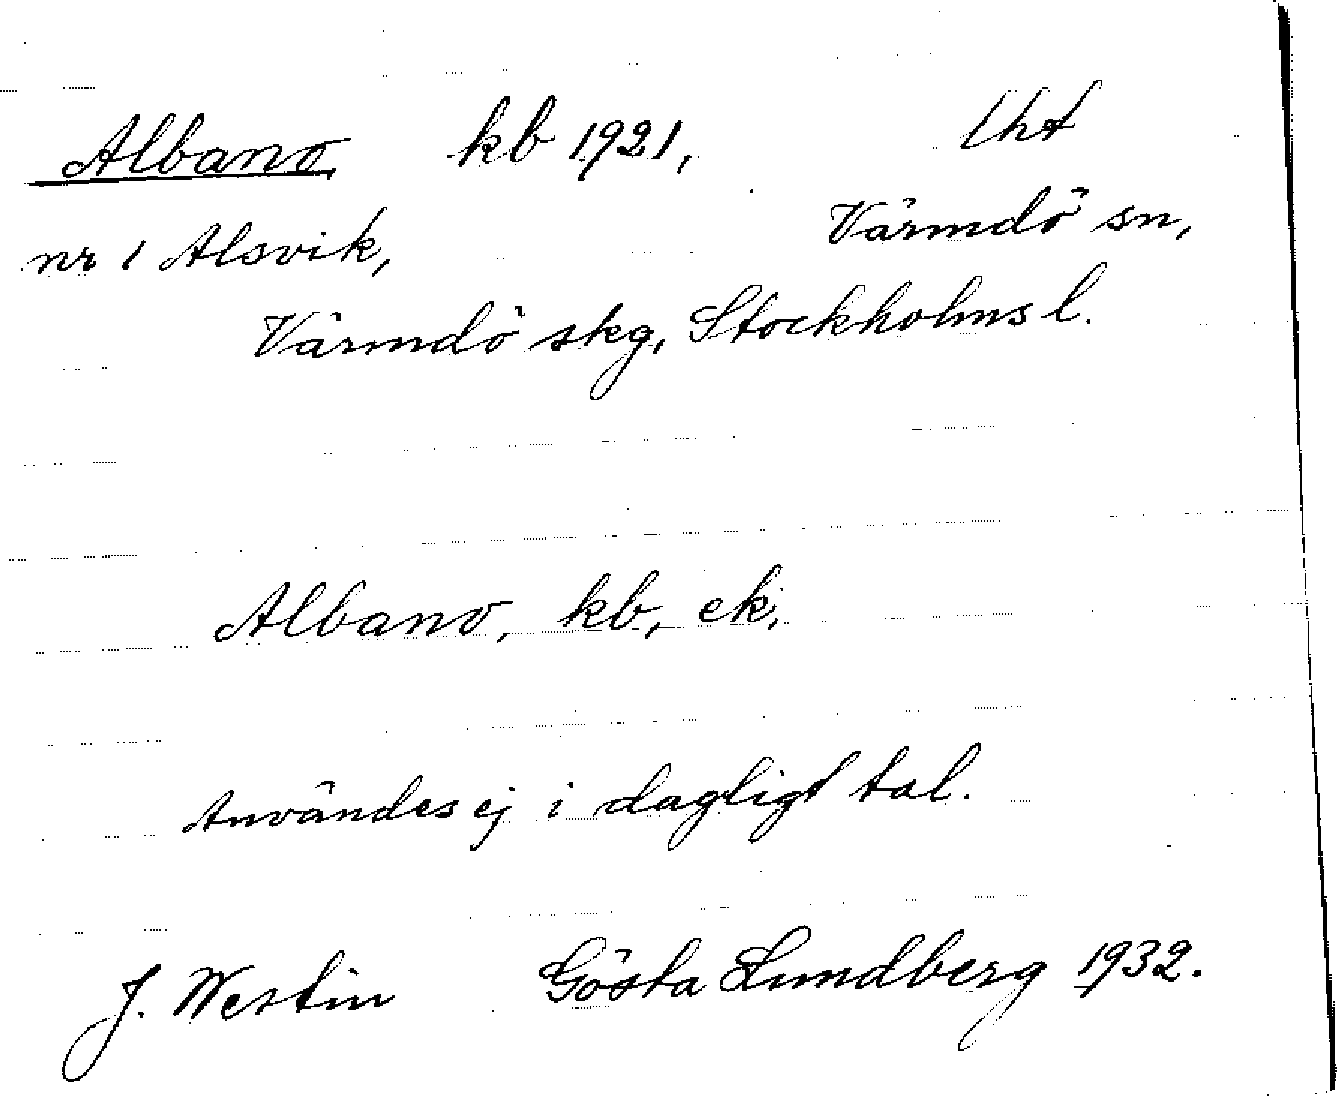 Albano, kb 1921, lht
nr 1 Alsvik, Värmdö sn,
Värmdö skg, Stockholms l.
Albano, kb, ek,
Användes ej i dagligt tal.
J. Westin Gösta Lundberg 1932.